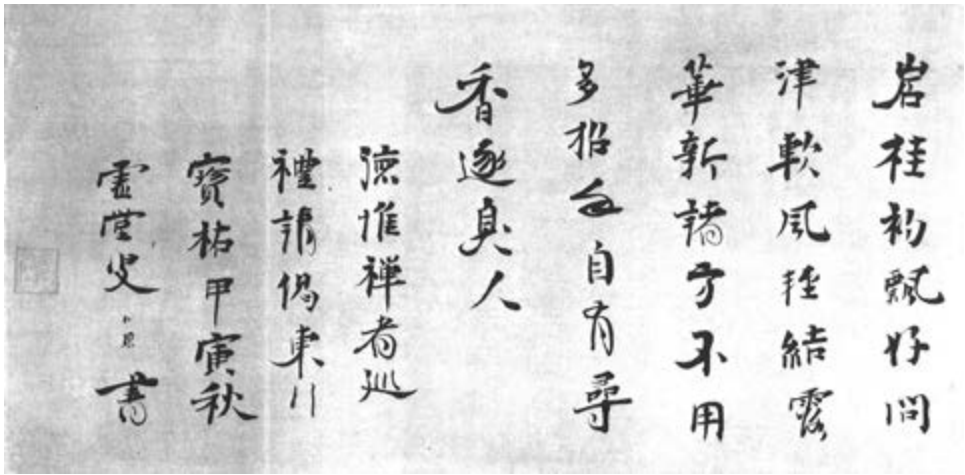 岩桂初飄好問
津軟風輕結露
華新諸方不用
多招手自有尋
香逐臭人
德惟禪者巡
禮請偈東行
寶祐甲寅秋
虛堂叟書